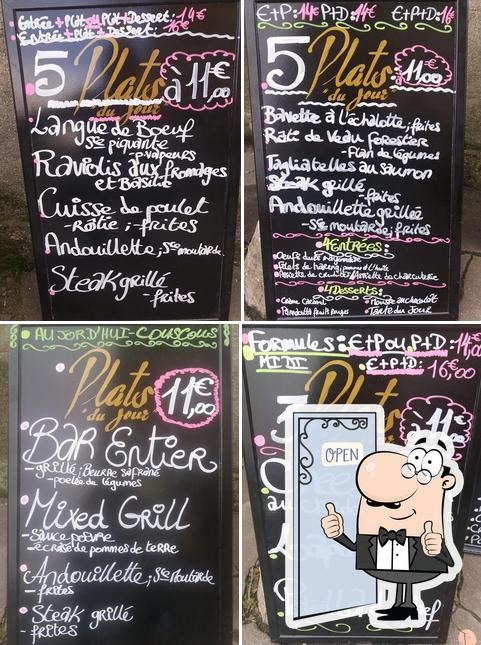 Entrée + Plat ou Plat + Dessert: 14€
Entrée + Plat + Dessert: 16€
5 Plats
du Jour
à 11€,00
Langue de Boeuf
Sce piquante
P. vapeurs
Raviolis aux fromages
et Basilic
Cuisse de poulet
- Rôtie ; - frites
Andouillette; Sce moutarde
Steak grillé
- frites
E+P: 14€ P+D: 14€ E+P+D: 16€
5 Plats
du Jour
à 11€,00
Bavette à l'échalotte; frites
Roti de Veau forestier
- Flan de légumes
Tagliatelles au saumon
Steak grillé
- frites
Andouillette grillée
- Sce moutarde; frites
4 Entrées:
Oeufs durs mayonnaise
Filets de hareng; pommes à l'huile
Assiette de crudités / Assiette de charcuterie
4 Desserts:
Crème Caramel
Mousse au chocolat
Pannacotta fruits rouges
Tarte du Jour
AUJORD'HUI - COUSCOUS
Plats
du Jour
11€,00
Bar Entier
- grillé; Beurre Safrané
- poêlée de légumes
Mixed Grill
- Sauce poivre
- écrasé de pommes de terre
Andouillette; Sce Moutarde
- frites
Steak grillé
- frites
Formules: E+P ou P+D: 14,00
MIDI E+P+D: 16,00
Plats
11€
OPEN